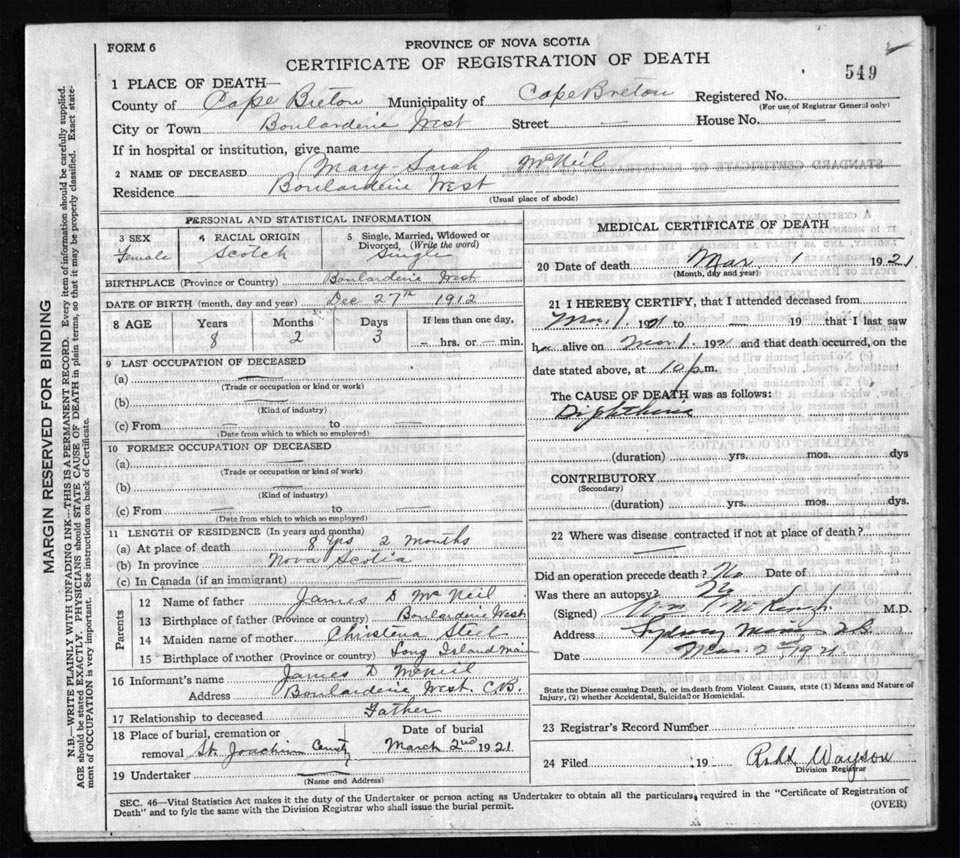 FORM 6
PROVINCE OF NOVA SCOTIA
CERTIFICATE OF REGISTRATION OF DEATH
549
1 PLACE OF DEATH—
County of Cape Breton Municipality of Cape Breton Registered No.
(For use of Registrar General only)
City or Town Boularderie West Street — House No. —
If in hospital or institution, give name
2 NAME OF DECEASED Mary Sarah McNeil
Residence Boularderie West
(Usual place of abode)
PERSONAL AND STATISTICAL INFORMATION
3 SEX Female
4 RACIAL ORIGIN Scotch
5 Single, Married, Widowed or Divorced, (Write the word) Single
BIRTHPLACE (Province or Country) Boularderie West
DATE OF BIRTH (month, day and year) Dec 27th 1912
8 AGE Years 8 Months 2 Days 3 If less than one day, — hrs. or — min.
9 LAST OCCUPATION OF DECEASED
(a) —
(Trade or occupation or kind of work)
(b) —
(Kind of industry)
(c) From — to —
(Date from which to which so employed)
10 FORMER OCCUPATION OF DECEASED
(a) —
(Trade or occupation or kind of work)
(b) —
(Kind of industry)
(c) From — to —
(Date from which to which so employed)
11 LENGTH OF RESIDENCE (In years and months)
(a) At place of death 8 yrs 2 months
(b) In province Nova Scotia
(c) In Canada (if an immigrant)
Parents
12 Name of father James D McNeil
13 Birthplace of father (Province or country) Boularderie West
14 Maiden name of mother Christena Steel
15 Birthplace of mother (Province or country) Long Island Main
16 Informant's name James D McNeil
Address Boularderie West. C.B.
17 Relationship to deceased Father
18 Place of burial, cremation or removal St. Joachim County
Date of burial March 2nd 1921
19 Undertaker
(Name and Address)
MEDICAL CERTIFICATE OF DEATH
20 Date of death Mar. 1 1921
(Month, day and year)
21 I HEREBY CERTIFY, that I attended deceased from
Mar. 1 1921 to — 19 that I last saw
her alive on Mar 1. 1921 and that death occurred, on the
date stated above, at 10 p.m.
The CAUSE OF DEATH was as follows:
Diphtheria
(duration) yrs. mos. dys
CONTRIBUTORY
(Secondary)
(duration) yrs. mos. dys.
22 Where was disease contracted if not at place of death?
—
Did an operation precede death? No Date of
Was there an autopsy? No
(Signed) M.D.
Address Sydney Mines
Date Mar. 2 1921
State the Disease causing Death, or in death from Violent Causes, state (1) Means and Nature of
Injury, (2) whether Accidental, Suicidal or Homicidal.
23 Registrar's Record Number
24 Filed 19
Division Registrar
SEC. 46—Vital Statistics Act makes it the duty of the Undertaker or person acting as Undertaker to obtain all the particulars required in the "Certificate of Registration of
Death" and to fyle the same with the Division Registrar who shall issue the burial permit.
(OVER)
MARGIN RESERVED FOR BINDING
N.B.—WRITE PLAINLY WITH UNFADING INK—THIS IS A PERMANENT RECORD. Every item of information should be carefully supplied.
AGE should be stated EXACTLY. PHYSICIANS should STATE CAUSE OF DEATH in plain terms, so that it may be properly classified. Exact state-
ment of OCCUPATION is very important. See instructions on back of Certificate.